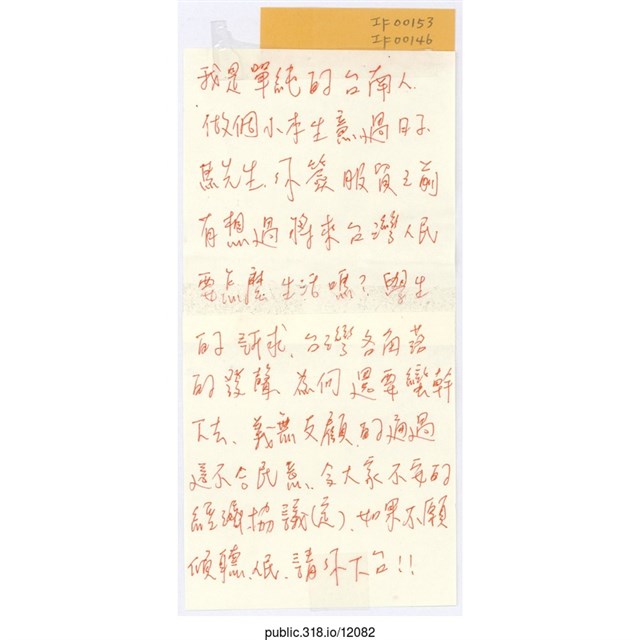 IF00153
IF00146
我是單純的台南人.
做個小本生意過日子
馬先生、你簽服貿之前
有想過將來台灣人民
要怎麼生活嗎？學生
的訴求、台灣各角落
的發聲、為何還要蠻幹
下去、義無反顧的通過
這不合民意、令大家不安的
經濟協議(定)、如果不願
傾聽人民、請你下台!!
public.318.io/12082